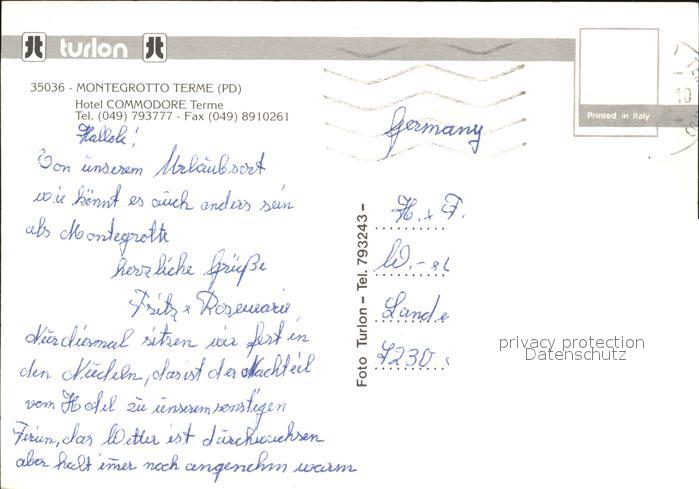 turlon
35036 - MONTEGROTTO TERME (PD)
Hotel COMMODORE Terme
Tel. (049) 793777 - Fax (049) 8910261
Printed in Italy
10
Halloh!
Von unserem Urlaubsort
wie könnt es auch anders sein
als Montegrotto
herzliche Grüße
Fritz + Rosemarie
Nur diesmal sitzen wir fest in
den Nudeln, das ist der Nachteil
vom Hotel zu unserem sonstigen
Ferien, das Wetter ist durchwachsen
aber halt imer noch angenehm warm
Foto Turlon – Tel. 793243 –
Germany
H. + F.
W.
Lande
7230
privacy protection
Datenschutz